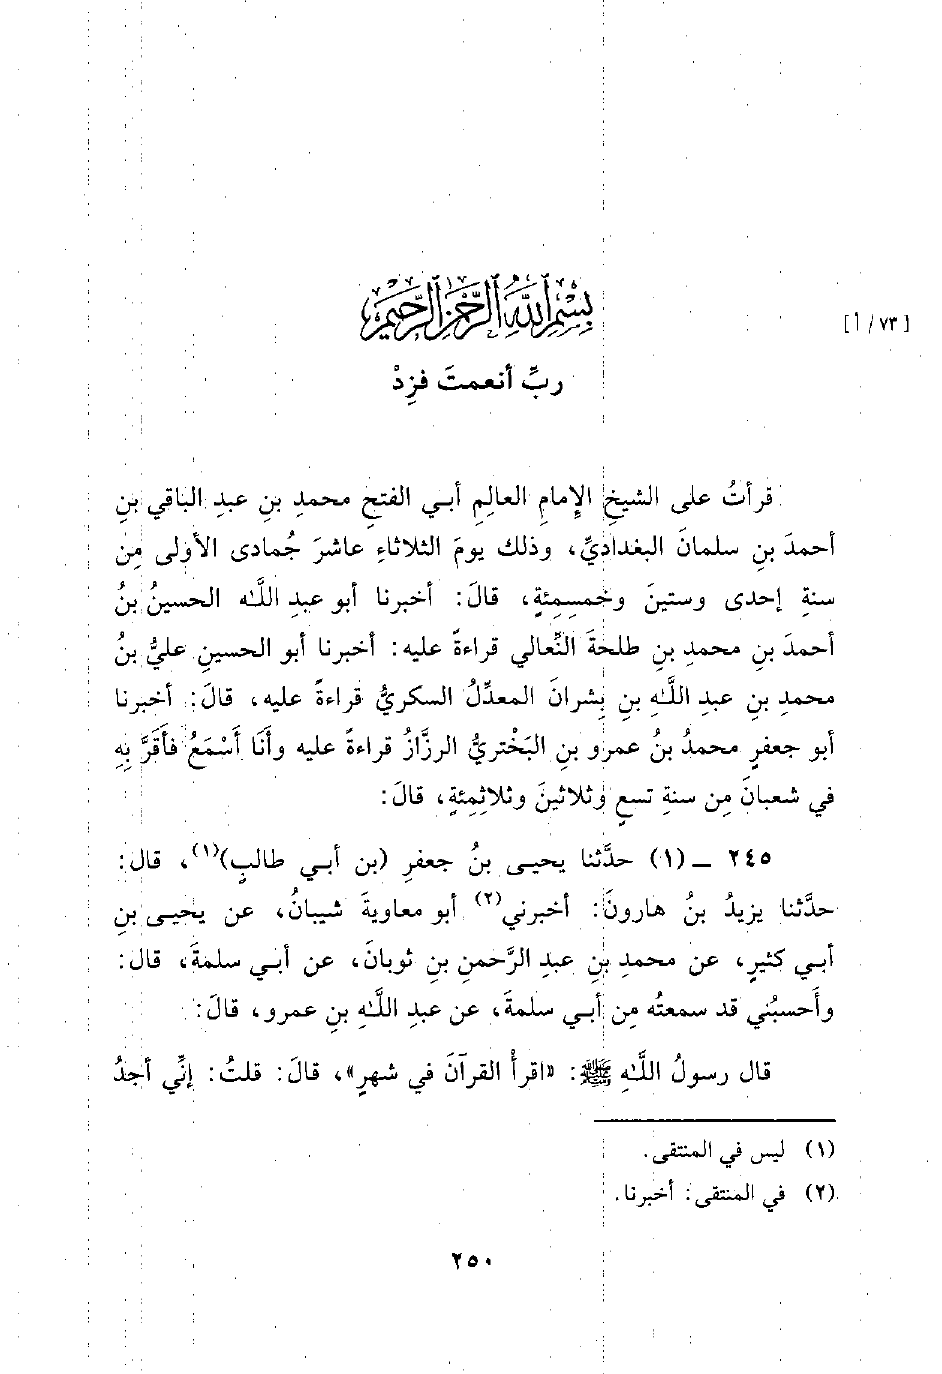 بِسْمِ ٱللَّهِ ٱلرَّحْمَٰنِ ٱلرَّحِيمِ
[٧٣/أ]
ربِّ أنعمتَ فزِدْ
قرأتُ على الشيخِ الإِمامِ العالِمِ أبي الفتحِ محمدِ بنِ عبدِ الباقي بنِ
أحمدَ بنِ سلمانَ البغداديِّ، وذلك يومَ الثلاثاءِ عاشرَ جُمادى الأولى مِن
سنةِ إحدى وستينَ وخمسِمِئةٍ، قالَ: أخبرنا أبو عبدِ اللَّه الحسينُ بنُ
أحمدَ بنِ محمدِ بنِ طلحةَ النِّعالي قراءةً عليه: أخبرنا أبو الحسينِ عليُّ بنُ
محمدِ بنِ عبدِ اللَّهِ بنِ بِشرانَ المعدِّلُ السكريُّ قراءةً عليه، قالَ: أخبرنا
أبو جعفرٍ محمدُ بنُ عمرِو بنِ البَخْتريُّ الرزَّازُ قراءةً عليه وأَنَا أَسْمَعُ فأَقَرَّ بِهِ
في شعبانَ مِن سنةِ تسعٍ وثلاثينَ وثلاثِمِئةٍ، قالَ:
٢٤٥ ــ (١) حدَّثنا يحيى بنُ جعفرِ (بن أبي طالبٍ)(١)، قال:
حدَّثنا يزيدُ بنُ هارونَ: أخبرني(٢) أبو معاويةَ شيبانُ، عن يحيى بنِ
أبي كثيرٍ، عن محمدِ بنِ عبدِ الرَّحمنِ بنِ ثوبانَ، عن أبي سلمةَ، قال:
وأَحسبُني قد سمعتُه مِن أبي سلمةَ، عن عبدِ اللَّهِ بنِ عمرو، قالَ:
قال رسولُ اللَّهِ ﷺ: «اقرأْ القرآنَ في شهرٍ»، قالَ: قلتُ: إنِّي أجدُ
(١) ليس في المنتقى.
(٢) في المنتقى: أخبرنا.
٢٥٠